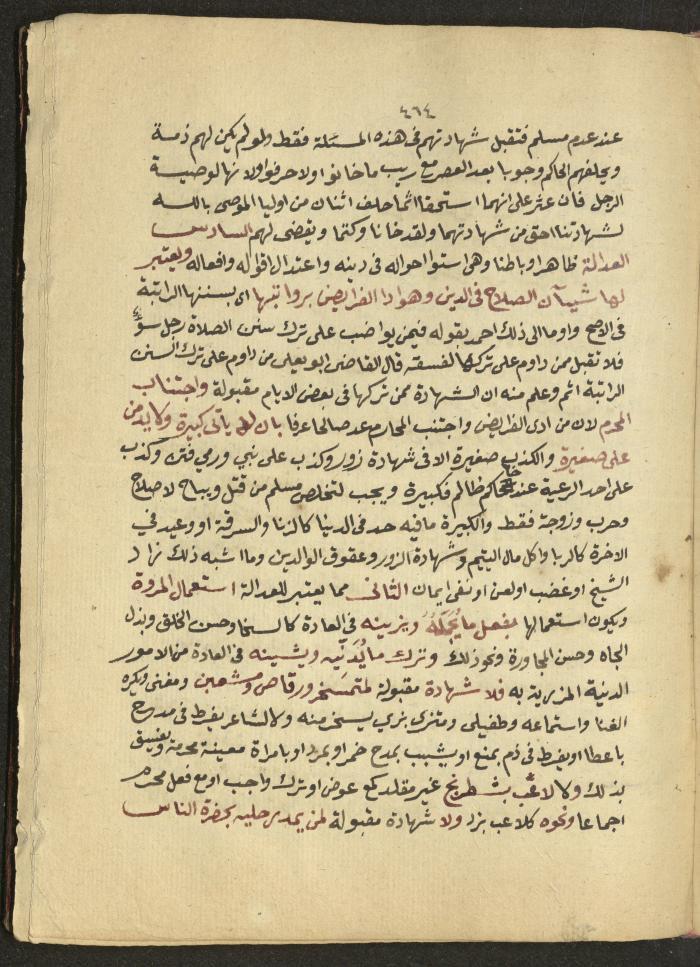 ٤٦٤
عند عدم مسلم فتقبل شهادتهم فى هذه المسئلة فقط ولو لم يكن لهم ذمة
ويحلفهم الحاكم وجوبا بعد العصر مع ريب ما خانوا ولا حرفوا ولا نها لوصية
الرجل فان عثر على انهما استحقا اثما حلف اثنان من اوليا الموصى بالله
لشهادتنا احق من شهادتهما ولقد خانا وكتما ويقضى لهم السادس
العدالة ظاهرا وباطنا وهى استوا احواله فى دينه واعتدال اقواله وافعاله ويعتبر
لها شيآن الصلاح فى الدين وهو ادا الفرايض برواتبها اى بسننها الراتبة
فى الاصح واوما الى ذلك احمد بقوله فيمن يواضب على ترك سنن الصلاة رجل سوء
فلا تقبل ممن داوم على تركها لفسقه قال القاضى ابو يعلى من داوم على ترك السنن
الراتبة اثم وعلم منه ان الشهادة ممن تركها فى بعض الايام مقبولة واجتناب
المحرم لان من ادى الفرايض واجتنب المحارم عد صالحا عرفا بان لا ياتى كبيرة ولا يدمن
على صغيرة والكذب صغيرة الا فى شهادة زور وكذب على نبي ورمي فتن وكذب
على احد الرعية عند حاكم ظالم فكبيرة ويجب لتخلص مسلم من قتل ويباح لاصلاح
وحرب وزوجة فقط والكبيرة ما فيه حد فى الدنيا كالزنا والسرقة او وعيد في
الاخرة كالربا واكل مال اليتيم وشهادة الزور وعقوق الوالدين وما اشبه ذلك زاد
الشيخ او غضب او لعن او نفى ايمان الثانى مما يعتبر للعدالة استعمال المروة
ويكون استعمالها بفعل ما يُجَمِّلُهُ ويزينه فى العادة كالسخا وحسن الخلق وبذل
الجاه وحسن المجاورة ونحو ذلك وترك ما يُدَنّيه ويشينه فى العادة من الامور
الدنية المزرية به فلا شهادة مقبولة لمتمَسخر ورقاص ومشعبن ومغنى ويكره
الغنا واستماعه وطفيلى ومتزى بزي يسخر منه ولا لشاعر يفرط فى مدح
باعطا او يفرط فى ذم بمنع او يشبب بمدح خمر او بمرد او بامراة معينة محرمة ويفسق
بذلك ولا لاعب بشطرنج غير مقلد كمع عوض او ترك واجب او مع فعل محرم
اجماعا ونحوه كلاعب بنرد ولا شهادة مقبولة لمن يمد رجليه بحضرة الناس